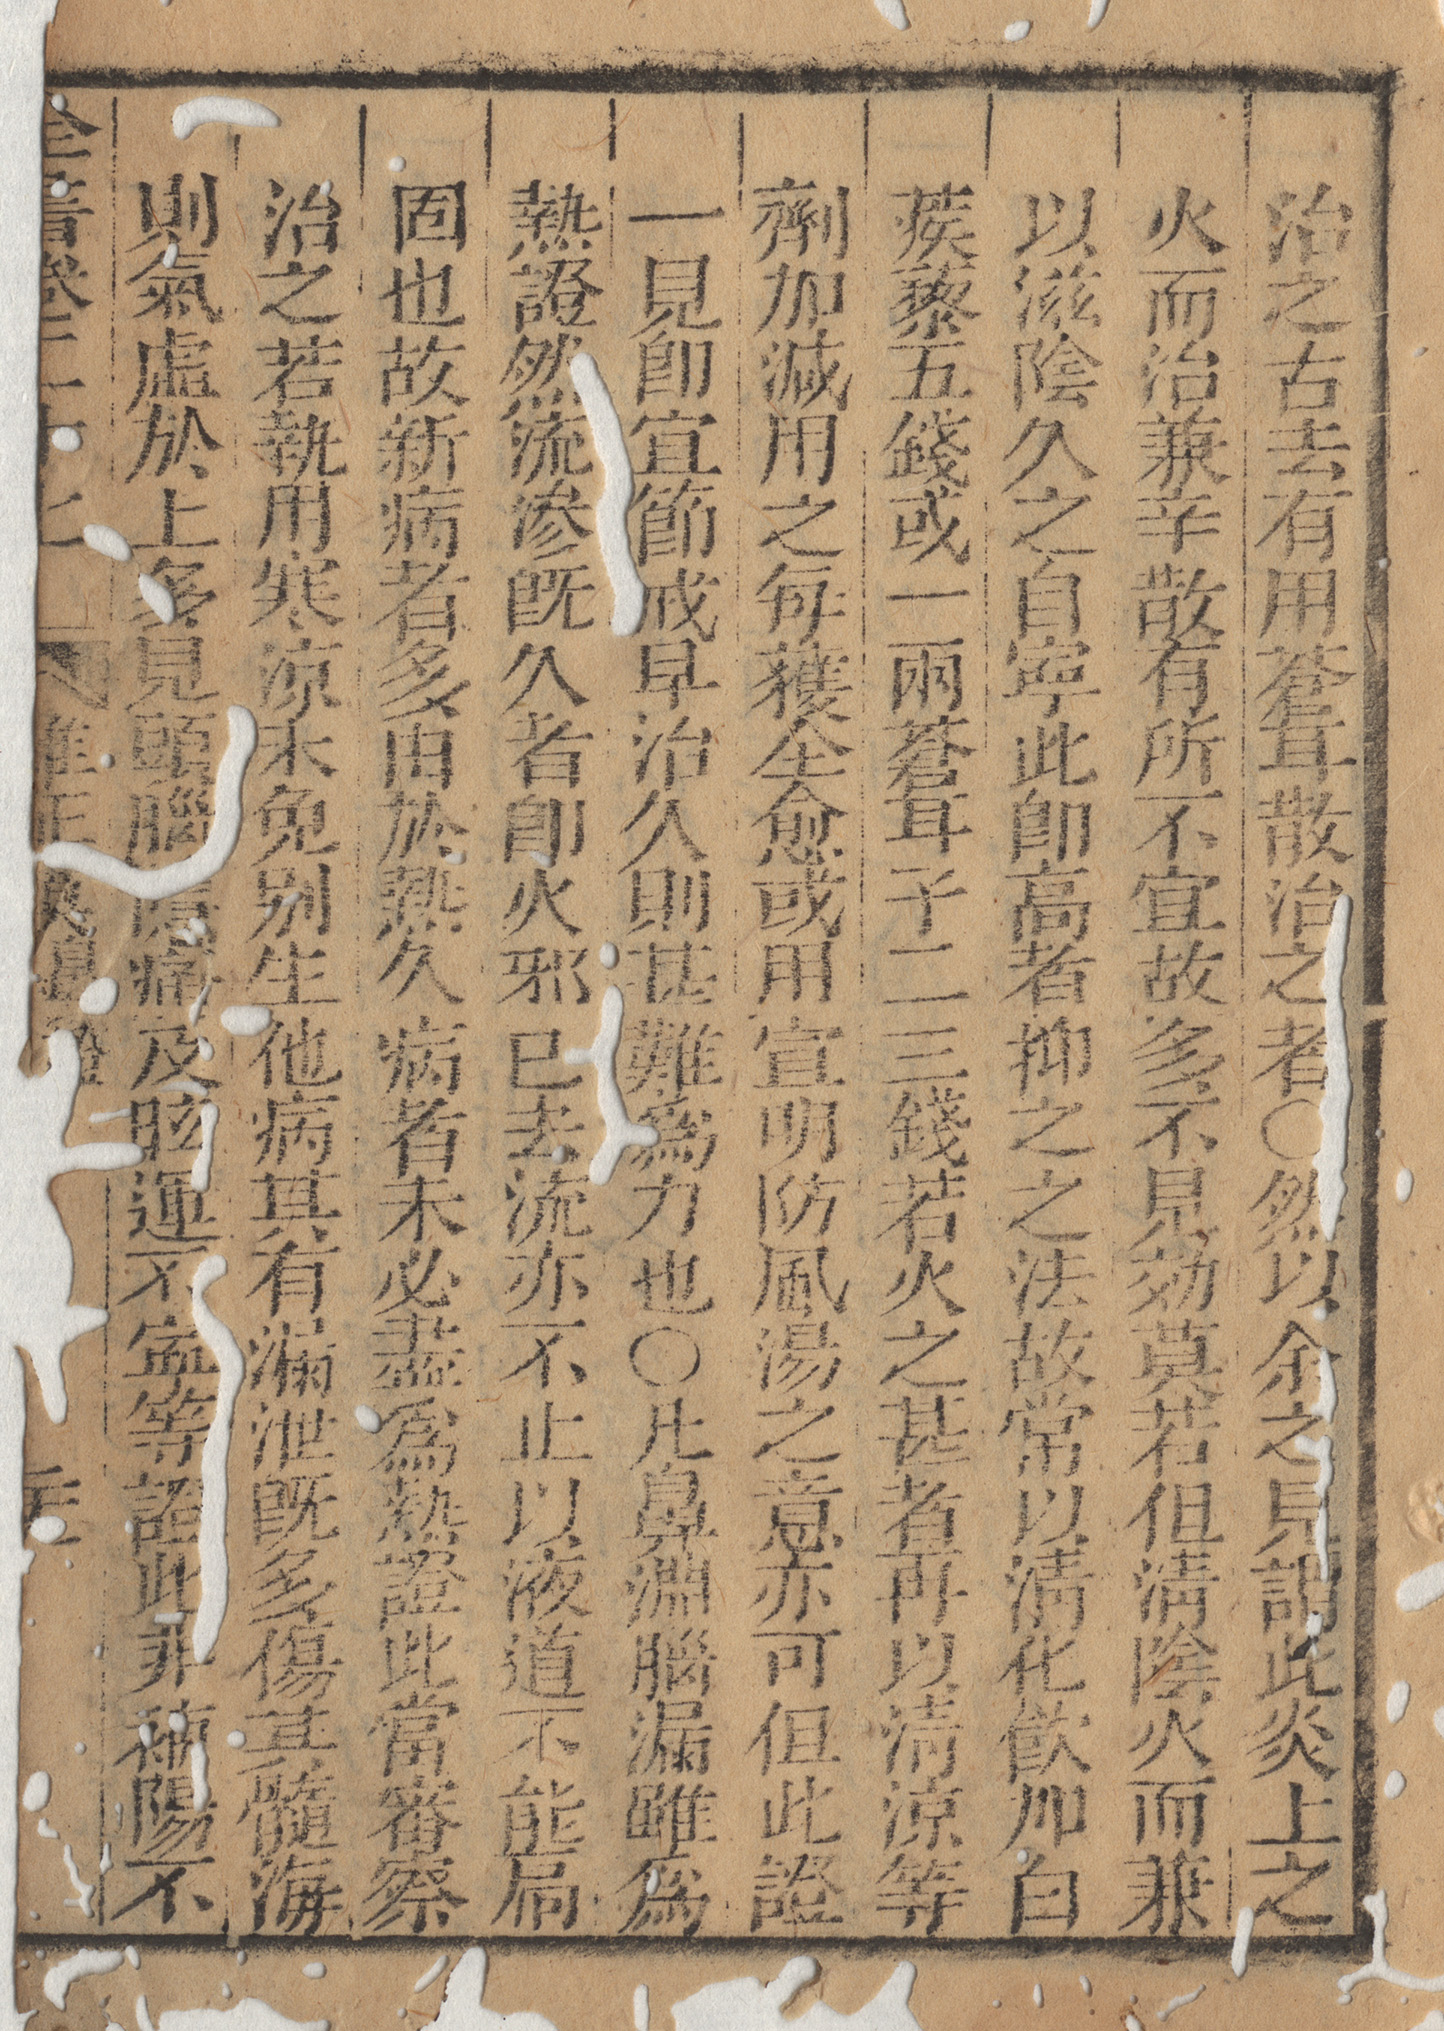 治之古去有用蒼耳散治之者○然以余之見謂此炎上之
火而治兼辛散有所不宜故多不見効莫若但淸陰火而兼
以滋陰久之自寧此卽高者抑之之法故常以淸化飮加白
蒺藜五錢或一兩蒼耳子二三錢若火之甚者再以清涼等
劑加減用之每獲全愈或用宣明防風湯之意亦可但此證
一見卽宜節戒早治久則甚難爲力也○凡鼻淵腦漏雖爲
熱證然流滲旣久者卽火邪已去流亦不止以液道不能扃
固也故新病者多由於熱久病者未必盡爲熱證此當審察
治之若執用寒涼未免別生他病其有漏泄旣多傷其髓海
則氣虛於上多見頭腦隱痛及眩運不寧等證此非補陽不
全書卷二十七 雜證謨 鼻證